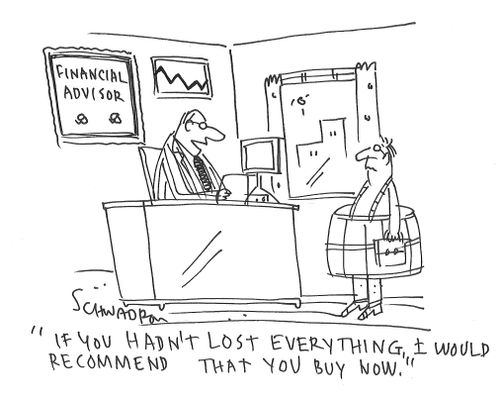 FINANCIAL
ADVISOR
SCHWADRON
"IF YOU HADN'T LOST EVERYTHING, I WOULD
RECOMMEND THAT YOU BUY NOW."